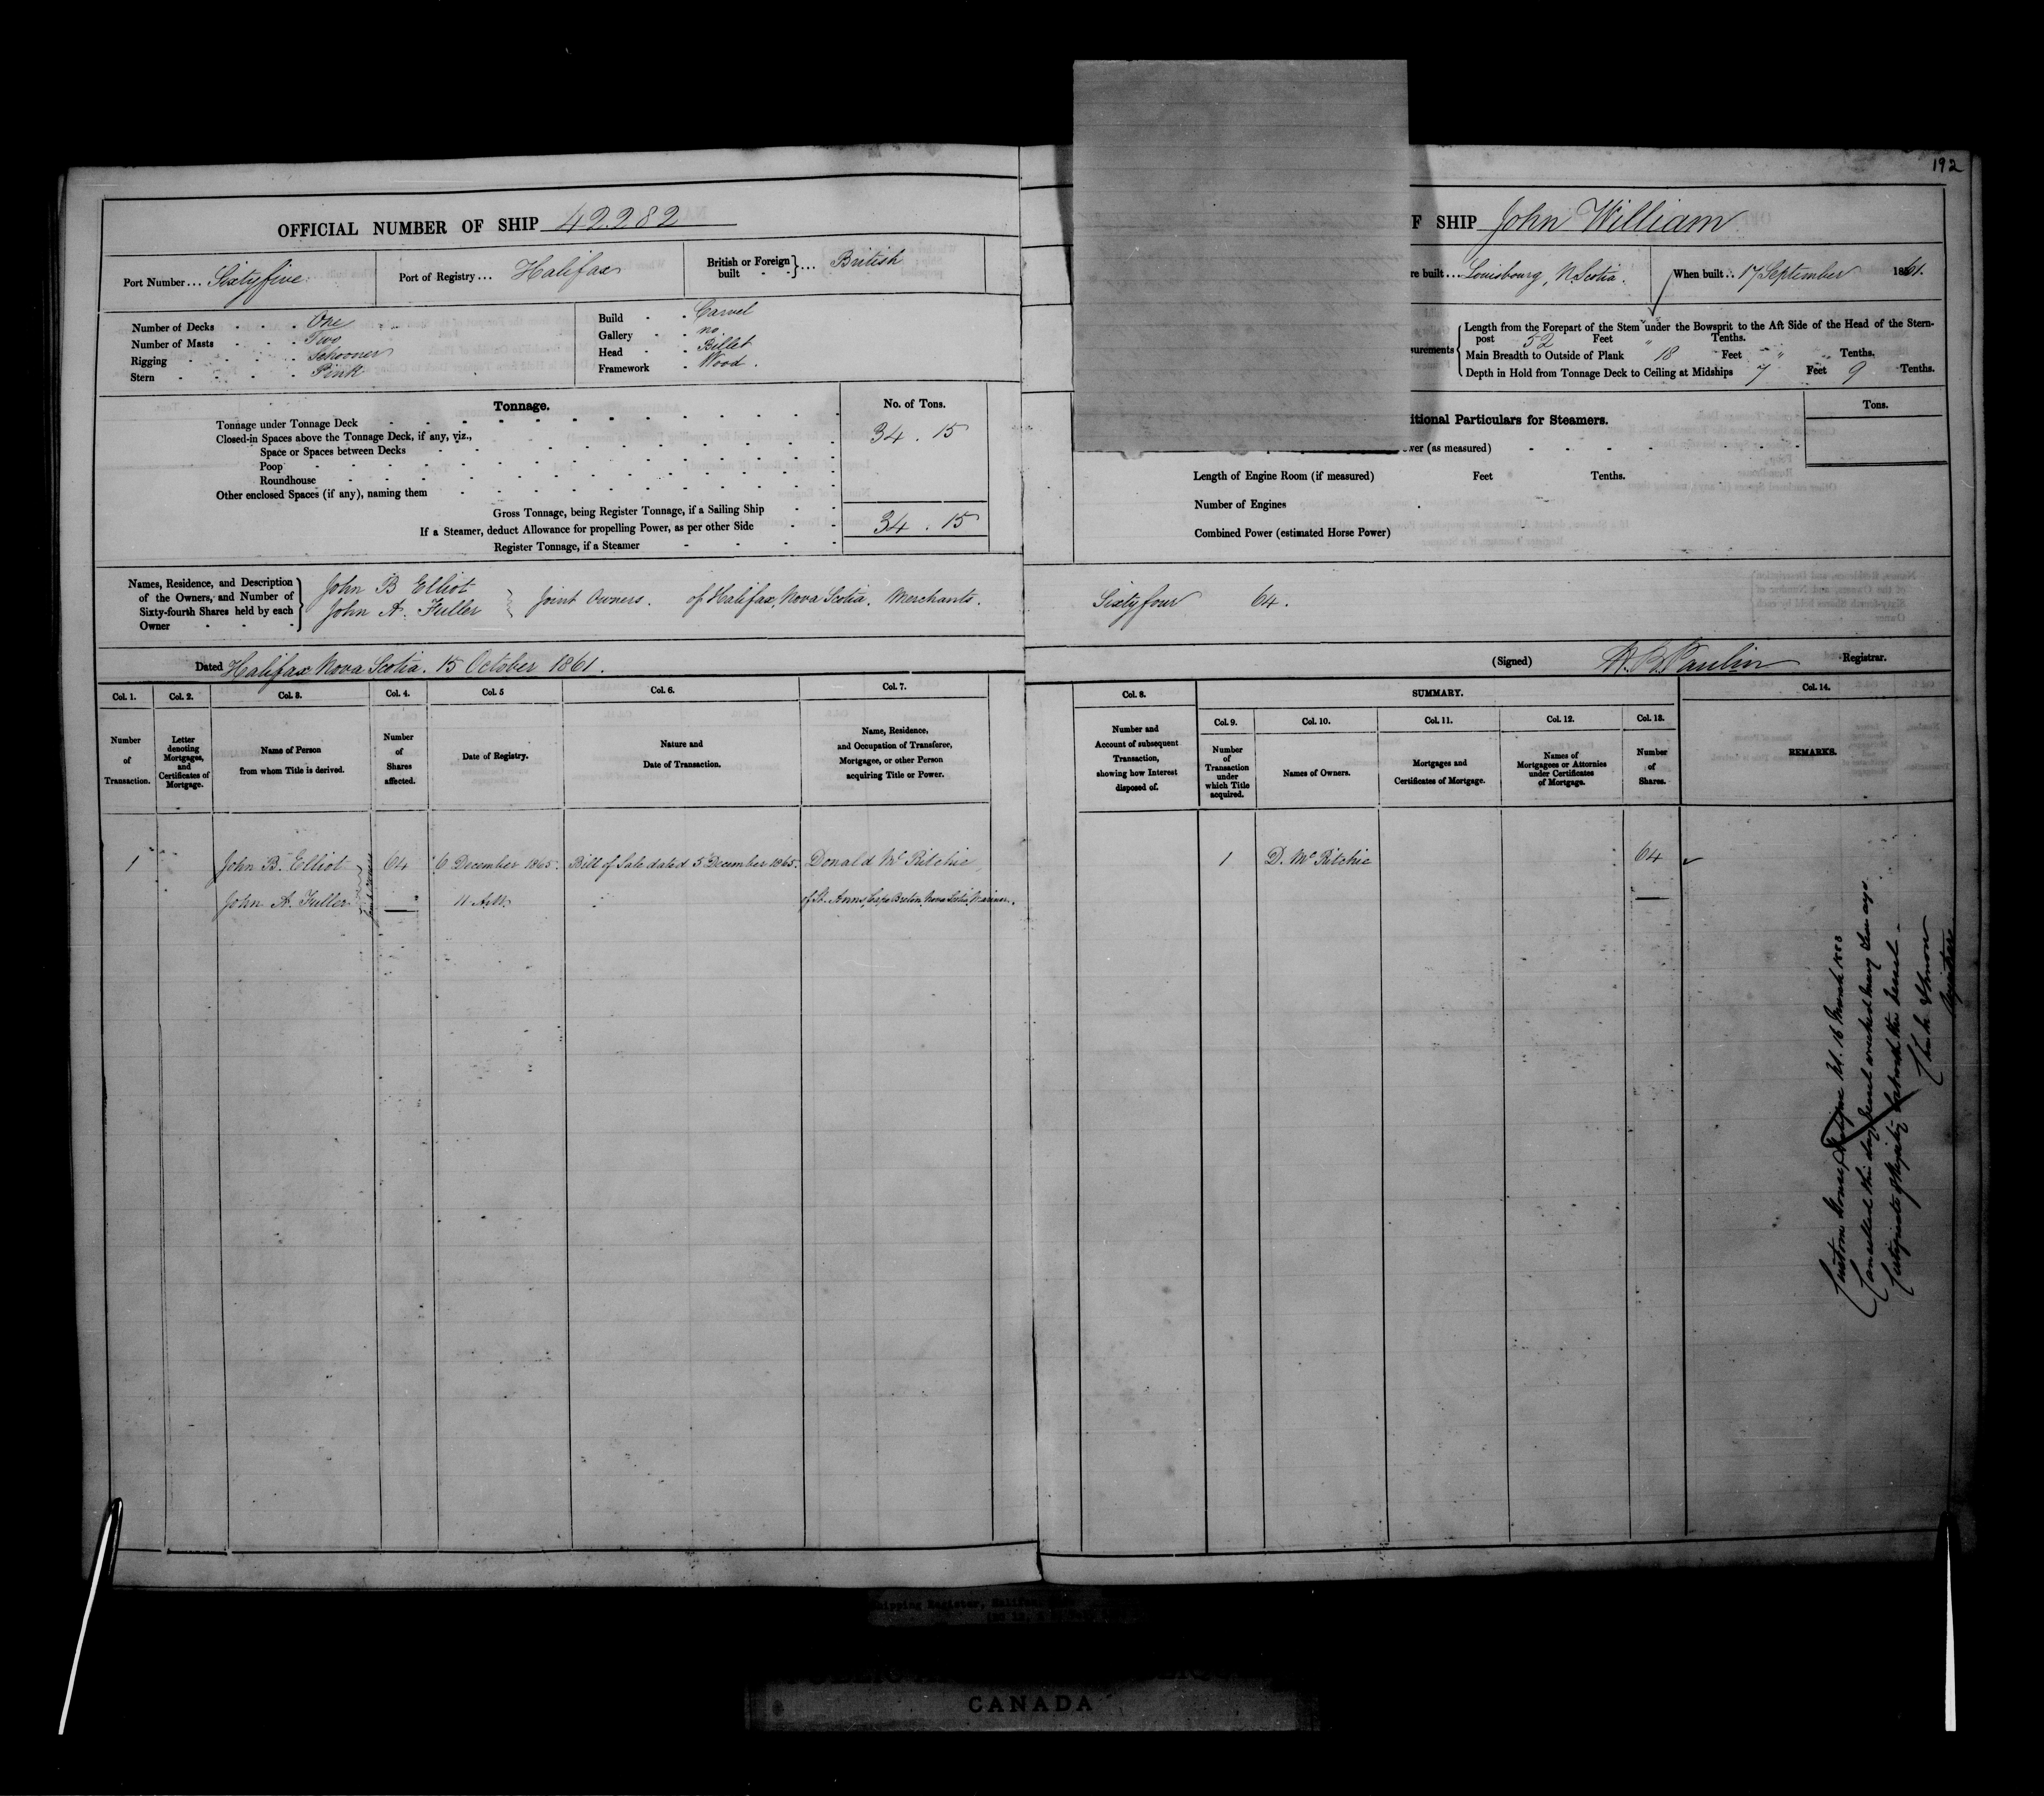 192
OFFICIAL NUMBER OF SHIP 42282
Port Number ... Sixtyfive
Port of Registry ... Halifax
British or Foreign built - - } ... British
Number of Decks - - - One
Number of Masts - - - Two
Rigging - - - - Schooner
Stern - - - - Pink
Build - - Carvel
Gallery - - no
Head - - Billet
Framework - Wood.
Tonnage.
No. of Tons.
Tonnage under Tonnage Deck
34 . 15
Closed-in Spaces above the Tonnage Deck, if any, viz.,
Space or Spaces between Decks
Poop
Roundhouse
Other enclosed Spaces (if any), naming them
Gross Tonnage, being Register Tonnage, if a Sailing Ship
34 . 15
If a Steamer, deduct Allowance for propelling Power, as per other Side
Register Tonnage, if a Steamer
Names, Residence, and Description
of the Owners, and Number of
Sixty-fourth Shares held by each
Owner
John B Elliot
John A. Fuller } Joint Owners. of Halifax, Nova Scotia, Merchants.
Dated Halifax Nova Scotia. 15 October 1861.
F SHIP John William
re built ... Louisbourg, N. Scotia.
When built .. 17 September 1861.
urements
Length from the Forepart of the Stem under the Bowsprit to the Aft Side of the Head of the Stern-
post 52 Feet " Tenths.
Main Breadth to Outside of Plank 18 Feet " Tenths.
Depth in Hold from Tonnage Deck to Ceiling at Midships 7 Feet 9 Tenths.
itional Particulars for Steamers.
Tons.
wer (as measured)
Length of Engine Room (if measured) Feet Tenths.
Number of Engines
Combined Power (estimated Horse Power)
Sixty four 64.
(Signed) Registrar.
Col. 1. Col. 2. Col. 3. Col. 4. Col. 5 Col. 6. Col. 7.
Number of Transaction.
Letter denoting Mortgages, and Certificates of Mortgage.
Name of Person from whom Title is derived.
Number of Shares affected.
Date of Registry.
Nature and Date of Transaction.
Name, Residence, and Occupation of Transferee, Mortgagee, or other Person acquiring Title or Power.
1 John B. Elliot 64 6 December 1865. Bill of Sale dated 5 December 1865. Donald McRitchie
John A. Fuller Joint Owners 11 A.M. of St. Anns, Cape Breton, Nova Scotia, Mariner.
Col. 8. SUMMARY. Col. 14.
Col. 9. Col. 10. Col. 11. Col. 12. Col. 13.
Number and Account of subsequent Transaction, showing how Interest disposed of.
Number of Transaction under which Title acquired.
Names of Owners.
Mortgages and Certificates of Mortgage.
Names of Mortgagees or Attornies under Certificates of Mortgage.
Number of Shares.
REMARKS.
1 D. McRitchie 64
Custom House, Halifax NS. 16 March
Cancelled this day, Vessel wrecked many years ago
Certificate of Registry lost with the vessel -
Registrar
Shipping Register, Halifax
CANADA